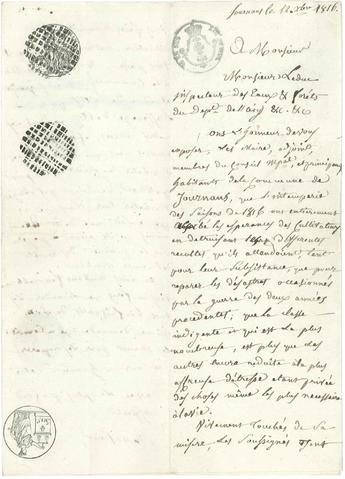 Journans le 12 Xbre 1816.
A Monsieur
Monsieur Leduc
inspecteur des Eaux & forêts
du Dept. de l'ain & & &
ont l'honneur de vous
exposer, Les Maire, adjoint,
membres du Conseil Mpal et principaux
habitants de la Commune de
Journans, que l'intemperie
des Saisons de 1816 ont entièrement
les esperances des Cultivateurs
en detruisant les differentes
recoltes qu'ils attendoient, tant
pour leur Subsistance, que pour
reparer les désastres occasionnés
par la guerre des deux années
précédentes; que la classe
indigente et qui est la plus
nombreuse, est plus que les
autres encore reduite à la plus
affreuse détresse etant privée
des choses même les plus necessaires
à la vie.
Vivement Touchés de Sa
misère, Les Soussignés osent